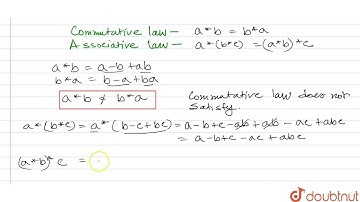 Commutative law - a*b = b*a
Associative law - a*(b*c) = (a*b)*c
a*b = a-b+ab
b*a = b-a+ba
a*b ≠ b*a
Commutative law does not satisfy.
a*(b*c) = a*(b-c+bc) = a-b+c-ab+ab-ac+abc
= a-b+c-ac+abc
(a*b)* c = (
doubtnut